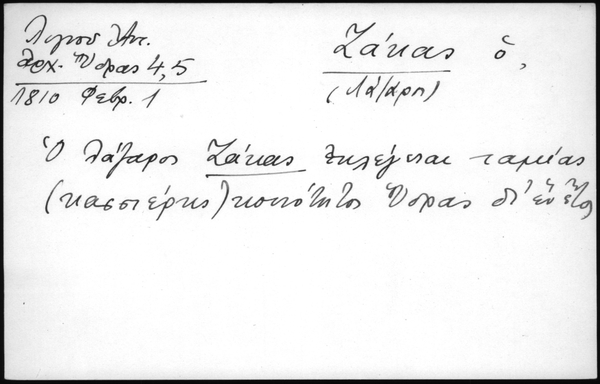 Λιγνού Ἀντ.
Ἀρχ. Ὕδρας 4, 5
1810 Φεβρ. 1
Ζάκας ὁ,
(Λάζαρος)
Ὁ Λάζαρος Ζάκας ἐκλέγεται ταμίας
(κασσιέρης) κοινότητος Ὕδρας δι' ἓν ἔτος